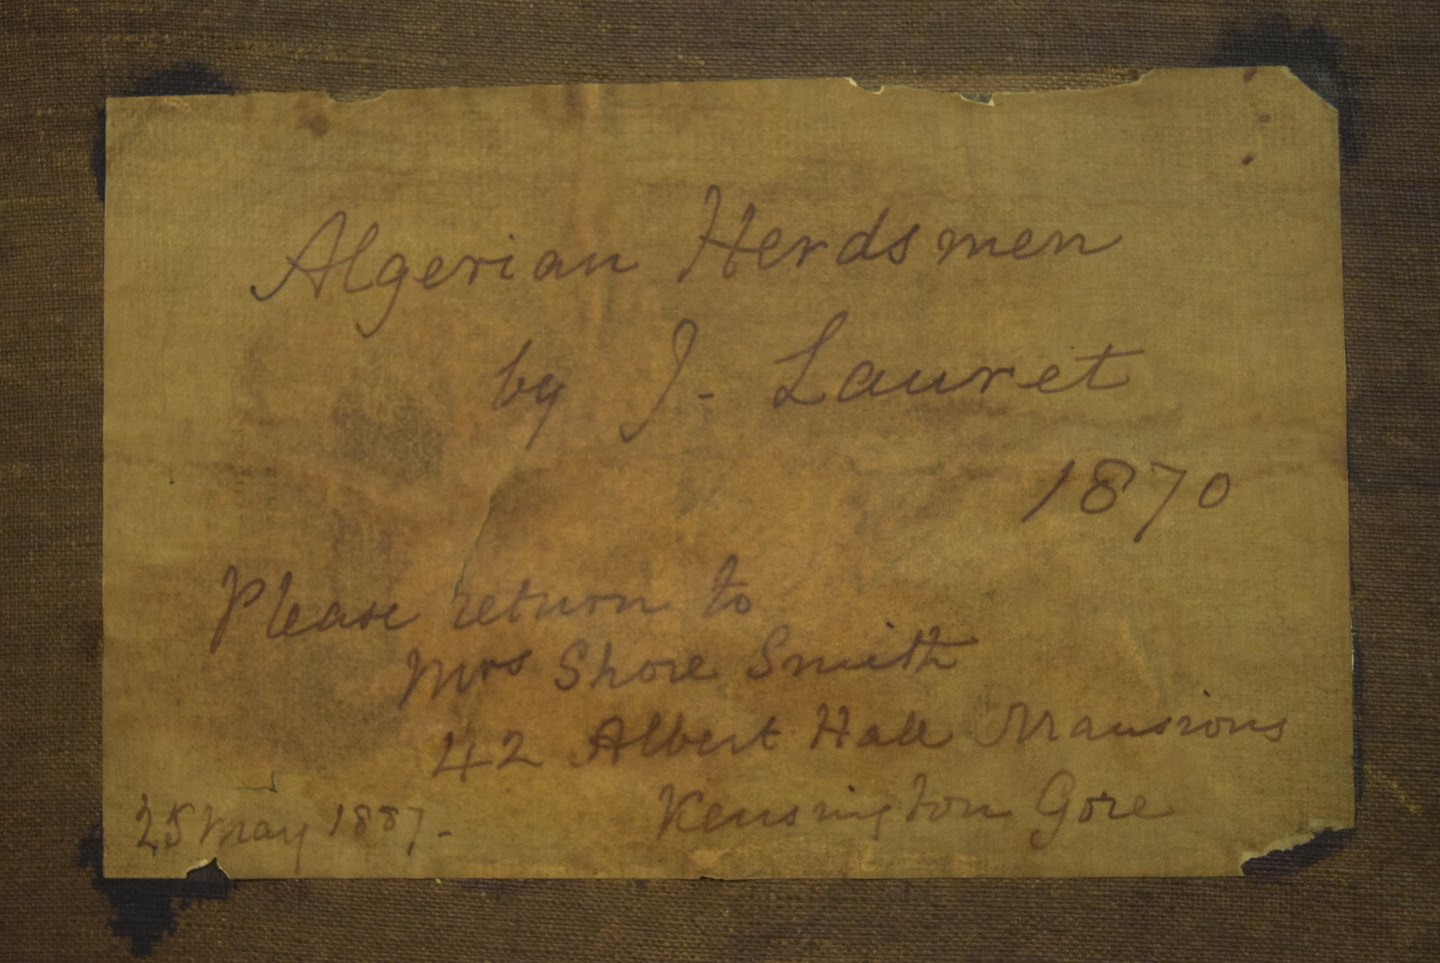 Algerian Herdsmen
by J. Lauret
1870
Please return to
Mrs Shore Smith
42 Albert Hall Mansions
Kensington Gore
25 May 1887.-